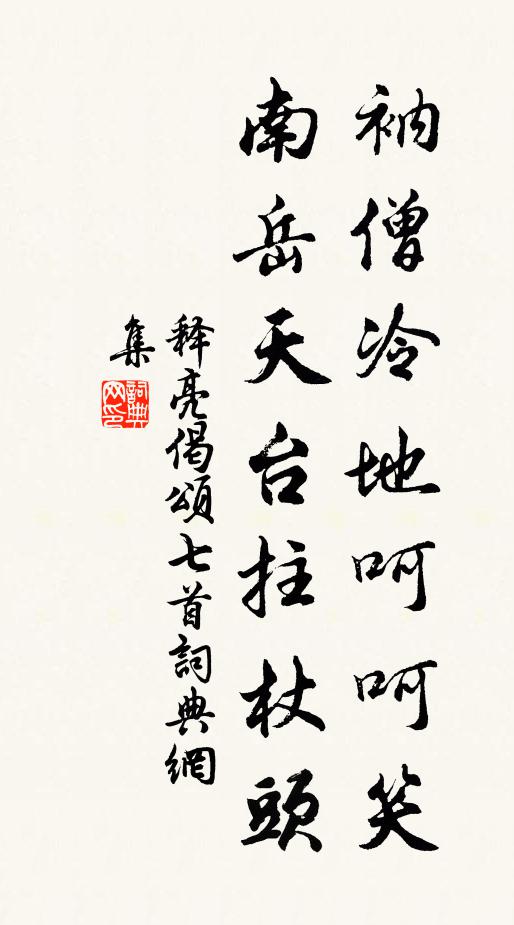 衲僧冷地呵呵笑
南岳天台拄杖頭
释亮偈頌七首詞典網
集
詞典
网印